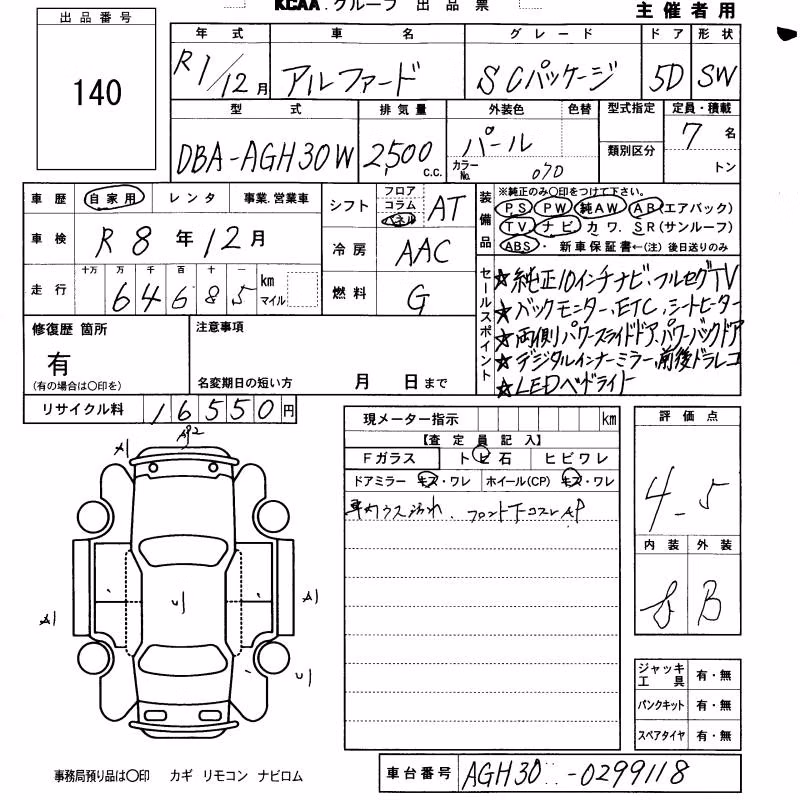 KCAA.グループ 出品票
主催者用
出品番号
140
年式 車名 グレード ドア 形状
R1/12月 アルファード SCパッケージ 5D SW
型式 排気量 外装色 色替 型式指定 定員・積載
DBA-AGH30W 2,500 c.c. パール 類別区分 7名
カラーNo. 070 トン
車歴 自家用 レンタ 事業.営業車
車検 R8年12月
走行 十万 万 千 百 十 一 km マイル
64685
シフト フロア コラム パネル AT
冷房 AAC
燃料 G
装備品
※純正のみ〇印をつけて下さい。
PS PW 純AW AB(エアバック)
TV ナビ カワ. SR(サンルーフ)
ABS・ 新車保証書←(注) 後日送りのみ
セールスポイント
☆純正10インチナビ.フルセグTV
☆バックモニター、ETC、シートヒーター
☆両側パワースライドドア、パワーバックドア
☆デジタルインナーミラー、前後ドラレコ
☆LEDヘッドライト
修復歴 箇所
有
(有の場合は〇印を)
注意事項
名変期日の短い方 月 日まで
リサイクル料 16550円
現メーター指示 km
【査定員記入】
Fガラス トビ石 ヒビワレ
ドアミラー キズ・ワレ ホイール(CP) キズ・ワレ
フロント下コスレAP
評価点
4-5
内装 外装
B
A1
AP2
A1
A1
U1
U1
ジャッキ工具 有・無
パンクキット 有・無
スペアタイヤ 有・無
事務局預り品は〇印 カギ リモコン ナビロム
車台番号 AGH30-0299118